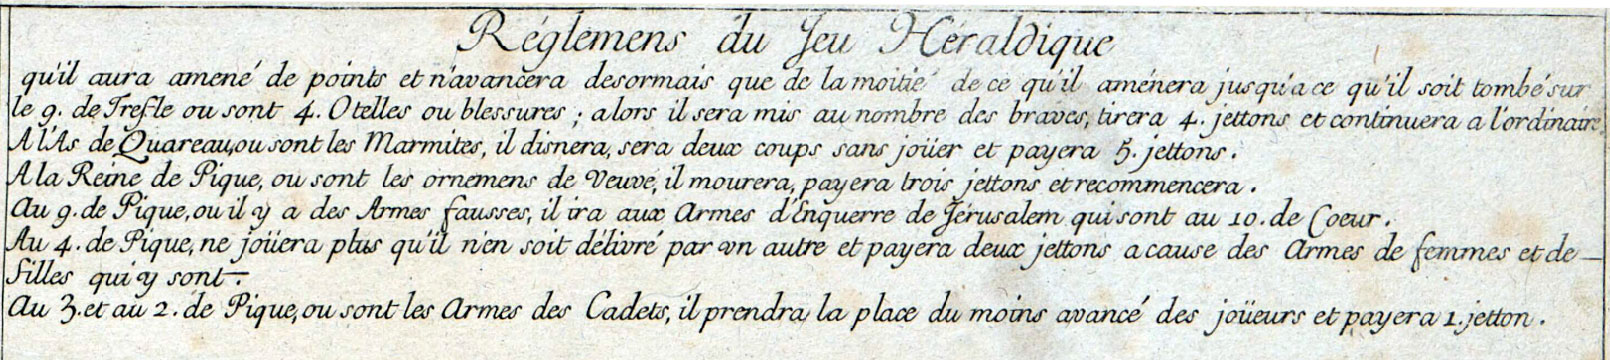 Réglemens du Jeu Héraldique
qu'il aura amené de points et n'avancera desormais que de la moitié de ce qu'il aménera jusqu'a ce qu'il soit tombé sur
le 9. de Trefle ou sont 4. Otelles ou blessures ; alors il sera mis au nombre des braves, tirera 4. jettons et continuera a l'ordinaire.
A l'As de Quareau, ou sont les Marmites, il disnera, sera deux coups sans joüer et payera 5. jettons.
A la Reine de Pique, ou sont les ornemens de Veuve, il mourera, payera trois jettons et recommencera.
Au 9. de Pique, ou il y a des Armes fausses, il ira aux Armes d'Enquerre de Jérusalem qui sont au 10. de Coeur.
Au 4. de Pique, ne joüera plus qu'il n'en soit délivré par vn autre et payera deux jettons a cause des Armes de femmes et de
filles qui y sont.
Au 3. et au 2. de Pique, ou sont les Armes des Cadets, il prendra la place du moins avancé des joüeurs et payera 1. jetton.